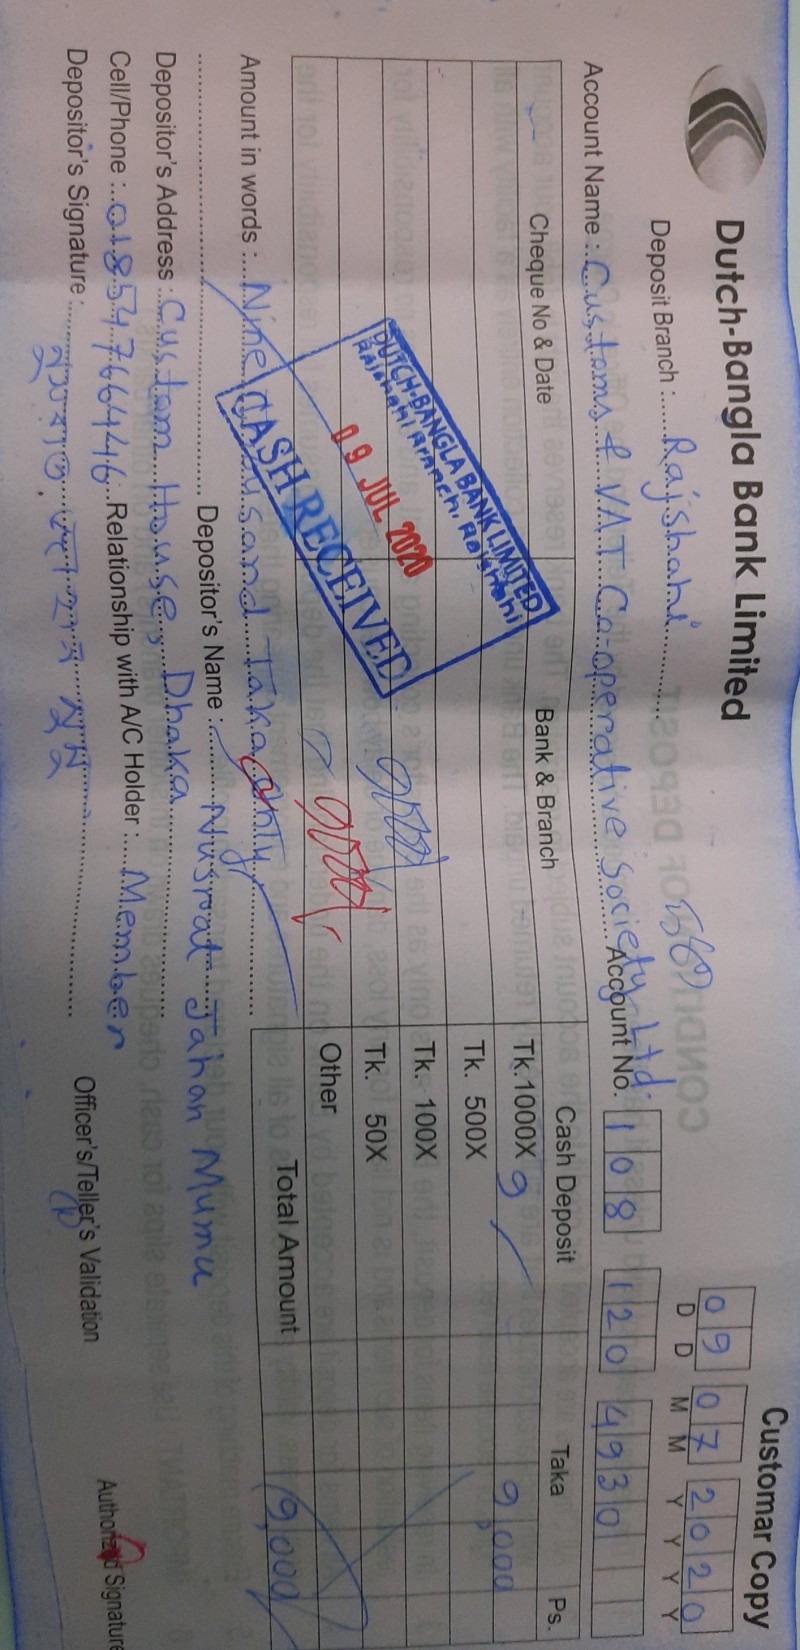 Dutch-Bangla Bank Limited
Customar Copy
09 07 2020
D D M M Y Y Y Y
Deposit Branch : Rajshahi
Account Name : Customs & VAT Co-operative Society Ltd. Account No. 108 120 4930
Cheque No & Date Bank & Branch Cash Deposit Taka Ps.
Tk.1000X 9 9,000
Tk. 500X
Tk. 100X
Tk. 50X
Other
Total Amount 9,000
DUTCH-BANGLA BANK LIMITED
Rajshahi Branch, Rajshahi
09 JUL 2020
CASH RECEIVED
Amount in words : Nine thousand Taka only
Depositor's Name : Nusrat Jahan Mumu
Depositor's Address : Custom House, Dhaka
Cell/Phone : 01854766446 Relationship with A/C Holder : Member
Depositor's Signature : নুসরাত জাহান মুমু
Officer's/Teller's Validation
Authorized Signature